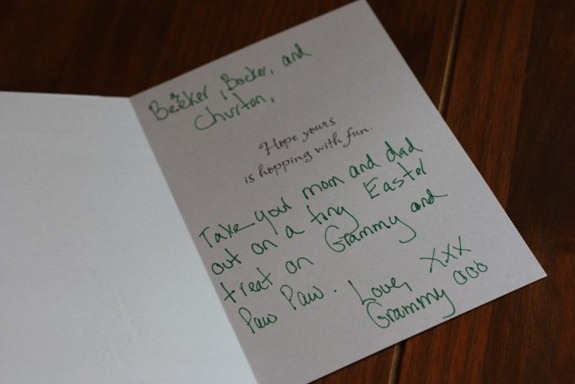 Becker, Bocker, and
Churton,
Hope yours
is hopping with fun.
Take your mom and dad
out on a tiny Easter
treat on Grammy and
Paw Paw. Love, XXX
Grammy OOO